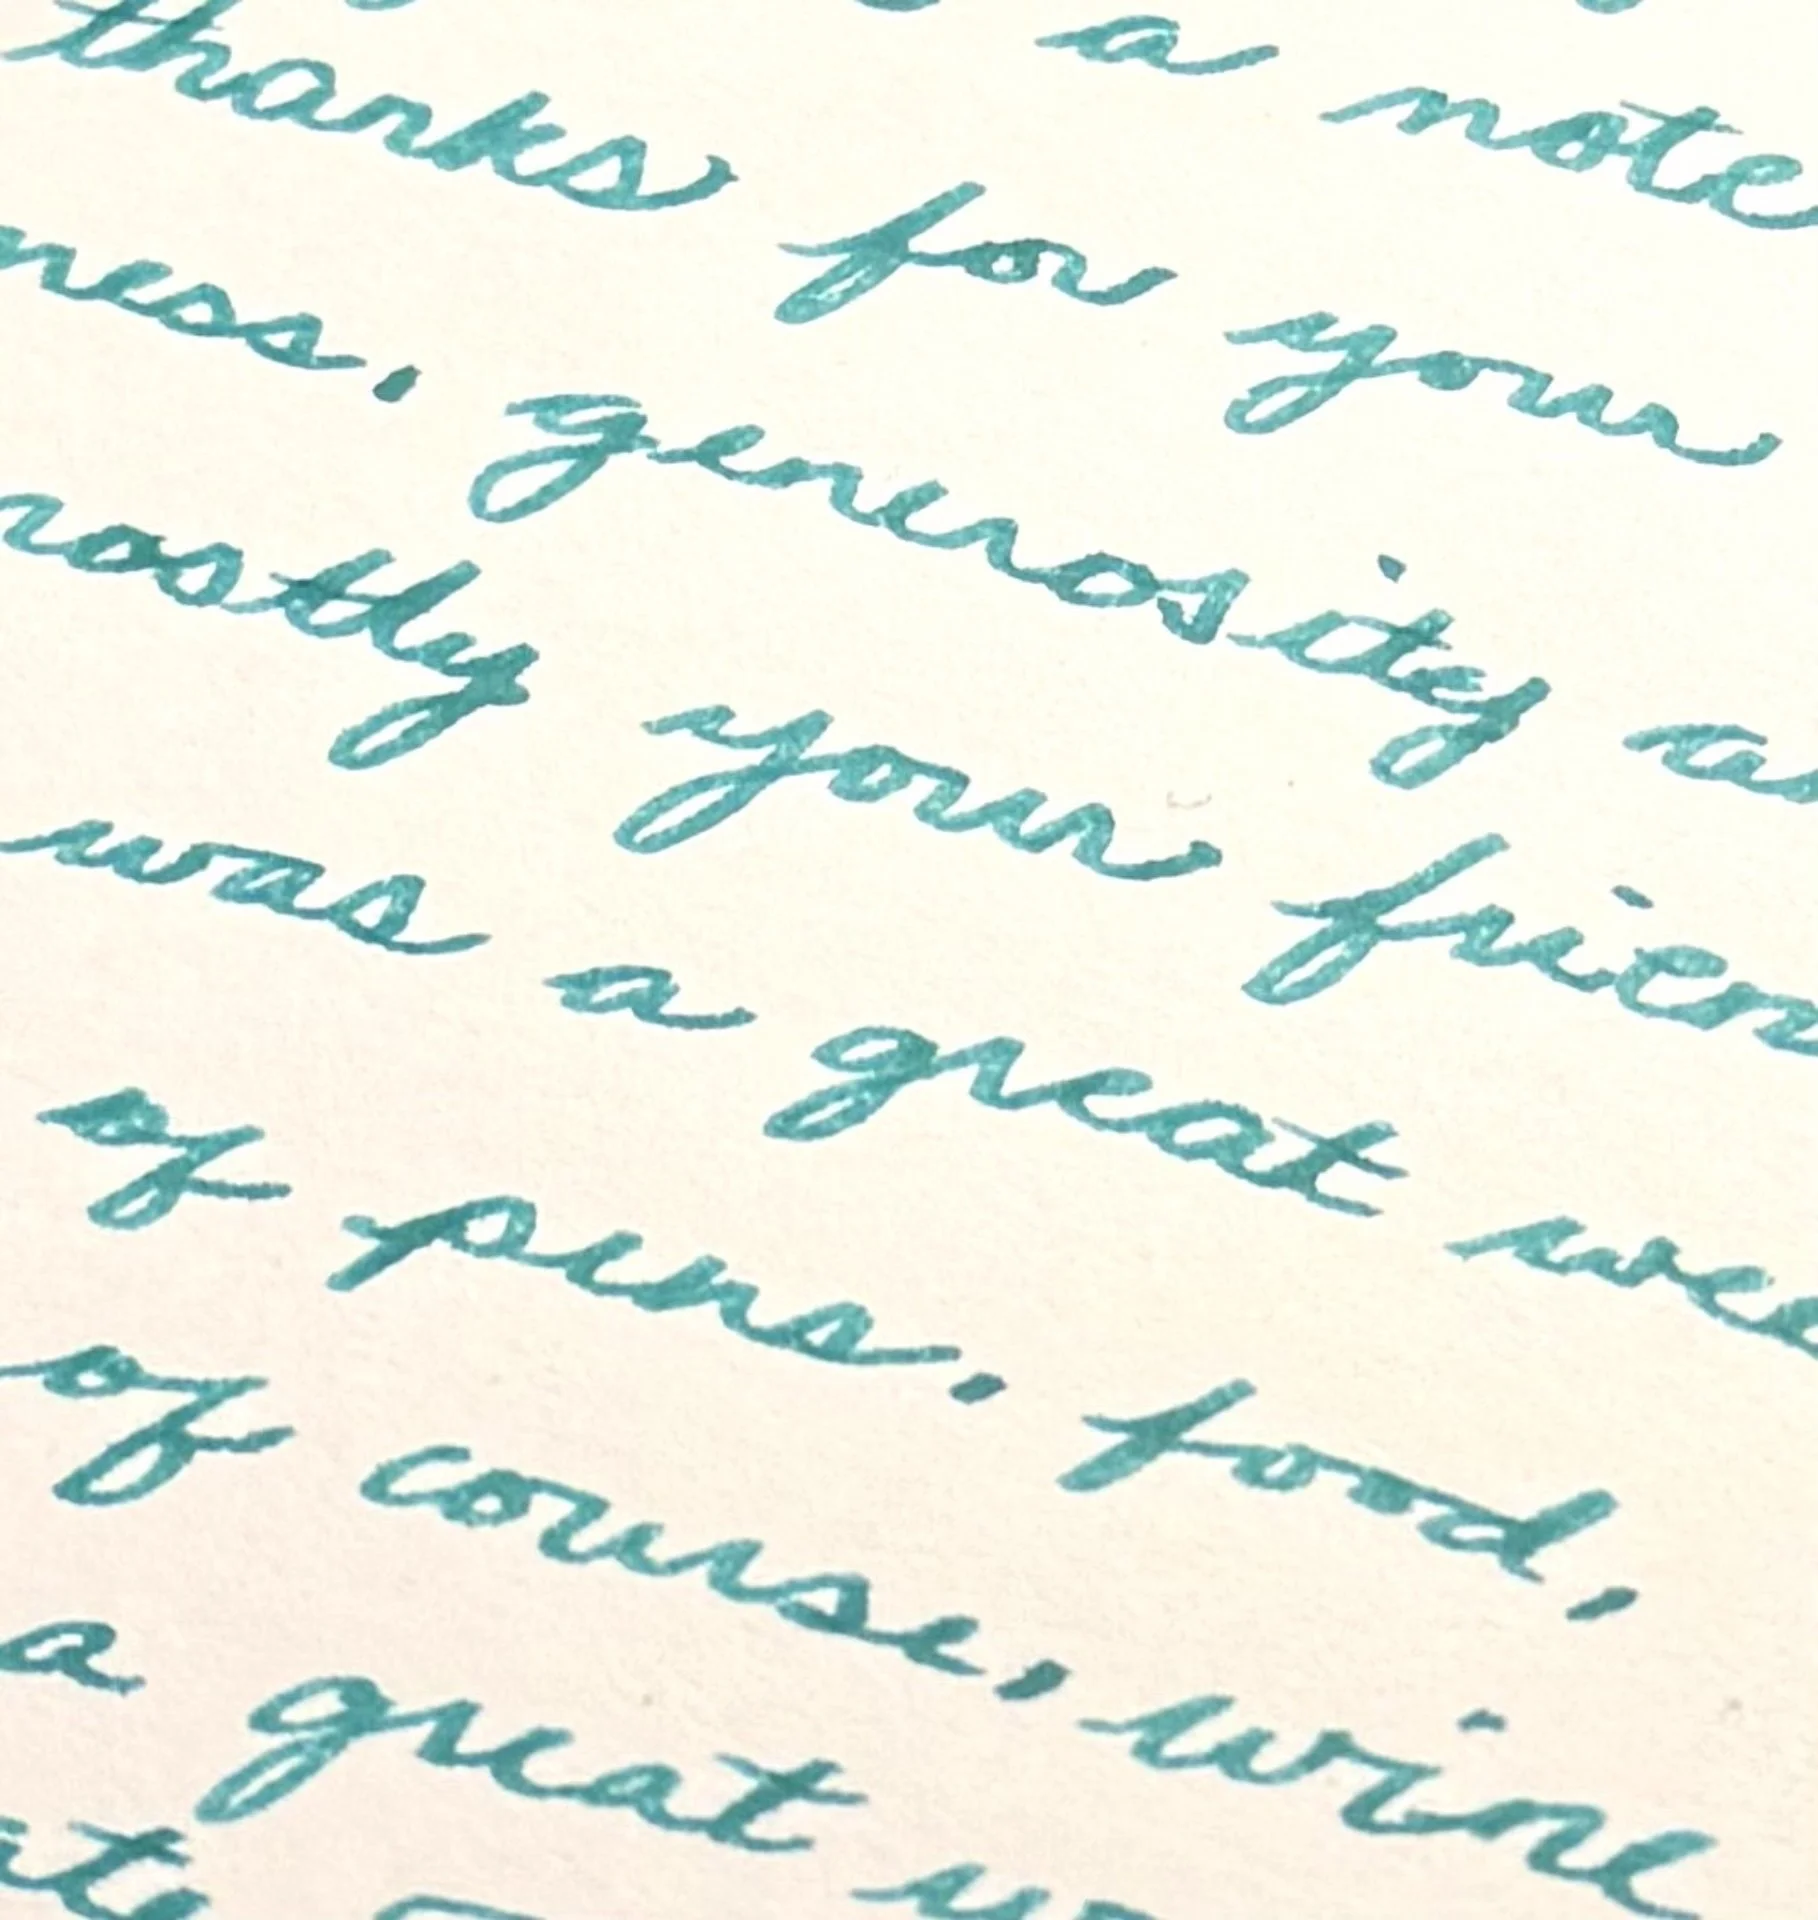 a note
thanks for your
ness, generosity a
ostly your frien
was a great wee
of pens, food,
of course, wine
a great w